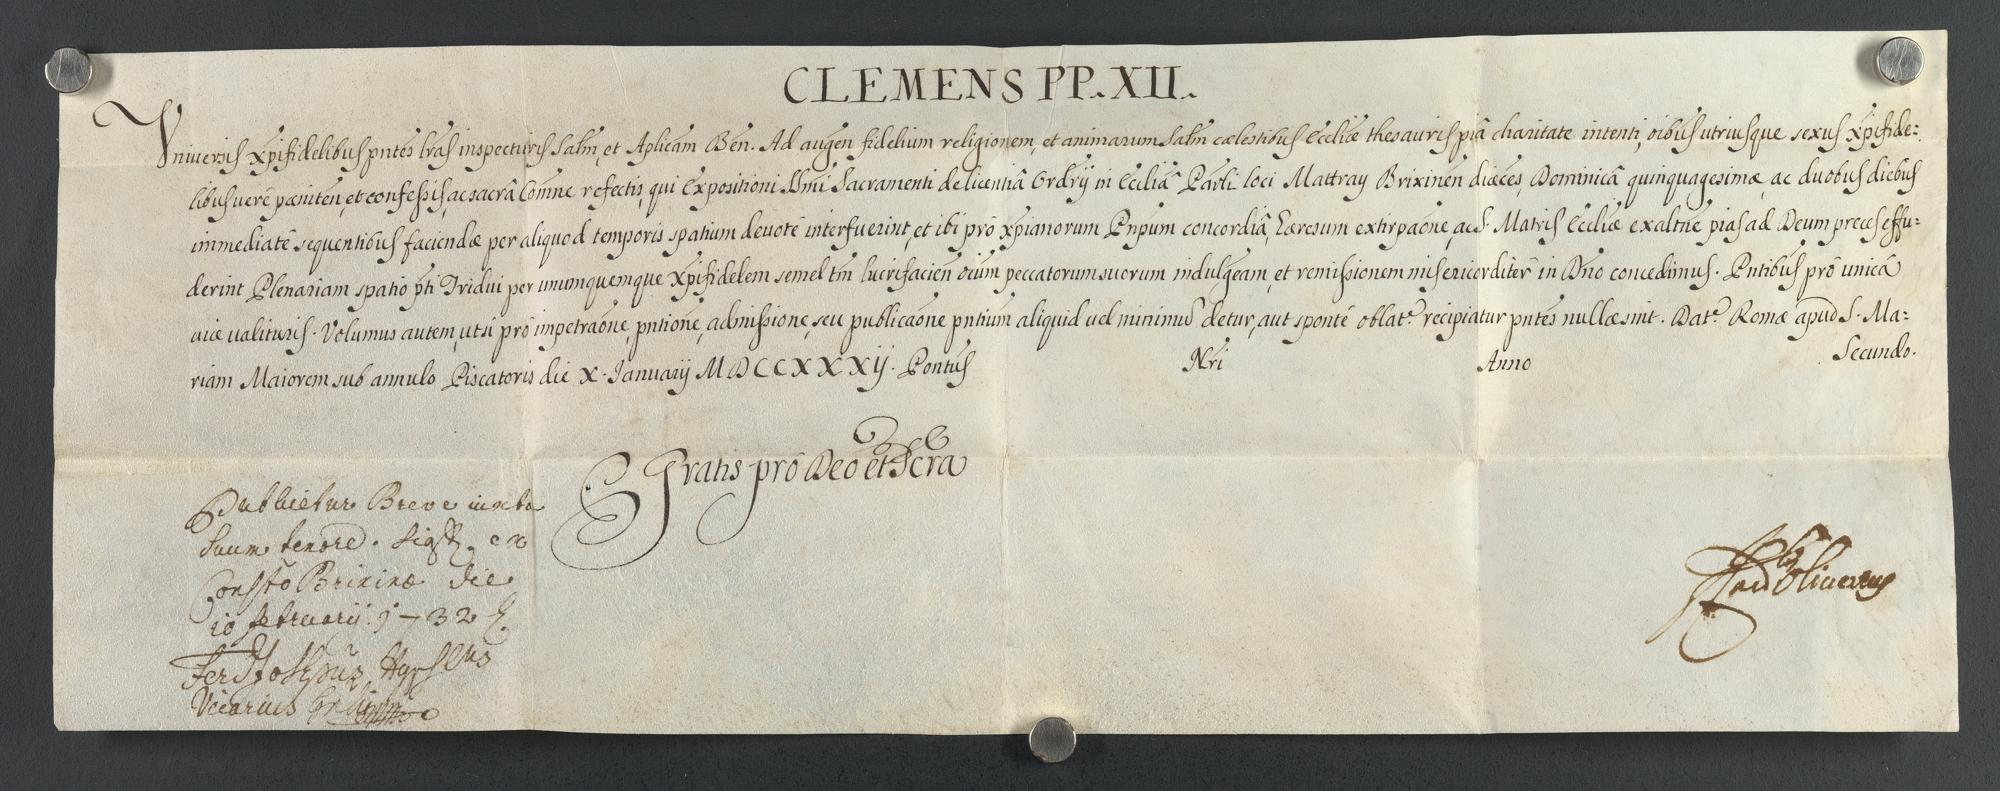 CLEMENS PP. XII.
Universis Xpifidelibus pntes lras inspecturis Salm, et Aplicam Ben. Ad augen fidelium religionem, et animarum Salm cælestibus Eccliæ thesauris piâ charitate intenti, oibus utriusque sexus Xpifide=
libus verè pæniten, et confessis, ac sacrâ Comne refectis, qui Expositioni SSmi Sacramenti de licentiâ Ordrij in Eccliâ Parli loci Mattray Brixinen diæces, Dominicâ quinquagesimæ, ac duobus diebus
immediatè sequentibus faciendæ per aliquod temporis spatium devotè interfuerint, et ibi prò Xpianorum Pnpum concordiâ, hæresum extirpaone, ac S. Matris Eccliæ exaltne pias ad Deum preces effu=
derint Plenariam spatio pti Tridui per unumquemque Xpifidelem semel tm lucrifacien oium peccatorum suorum indulgeam, et remissionem misericorditer in Dno concedimus. Pntibus prò unicâ
vice valituris. Volumus autem, ut si prò impetraone, pntione, admissione, seu publicaone pntium aliquid vel minimũ detur, aut spontè oblat. recipiatur pntes nullæ sint. Dat. Romæ apud S. Ma=
riam Maiorem sub annulo Piscatoris die X. Januarij MDCCXXXij. Pontus Nri Anno Secundo.
Gratis prò Deo et Scra
Publicetur Breve iuxta
suum tenorē. Sig. ex
Conssto Brixinæ die
10 februarii 1732
Ferd Joseph
Vicarius
Oliverius